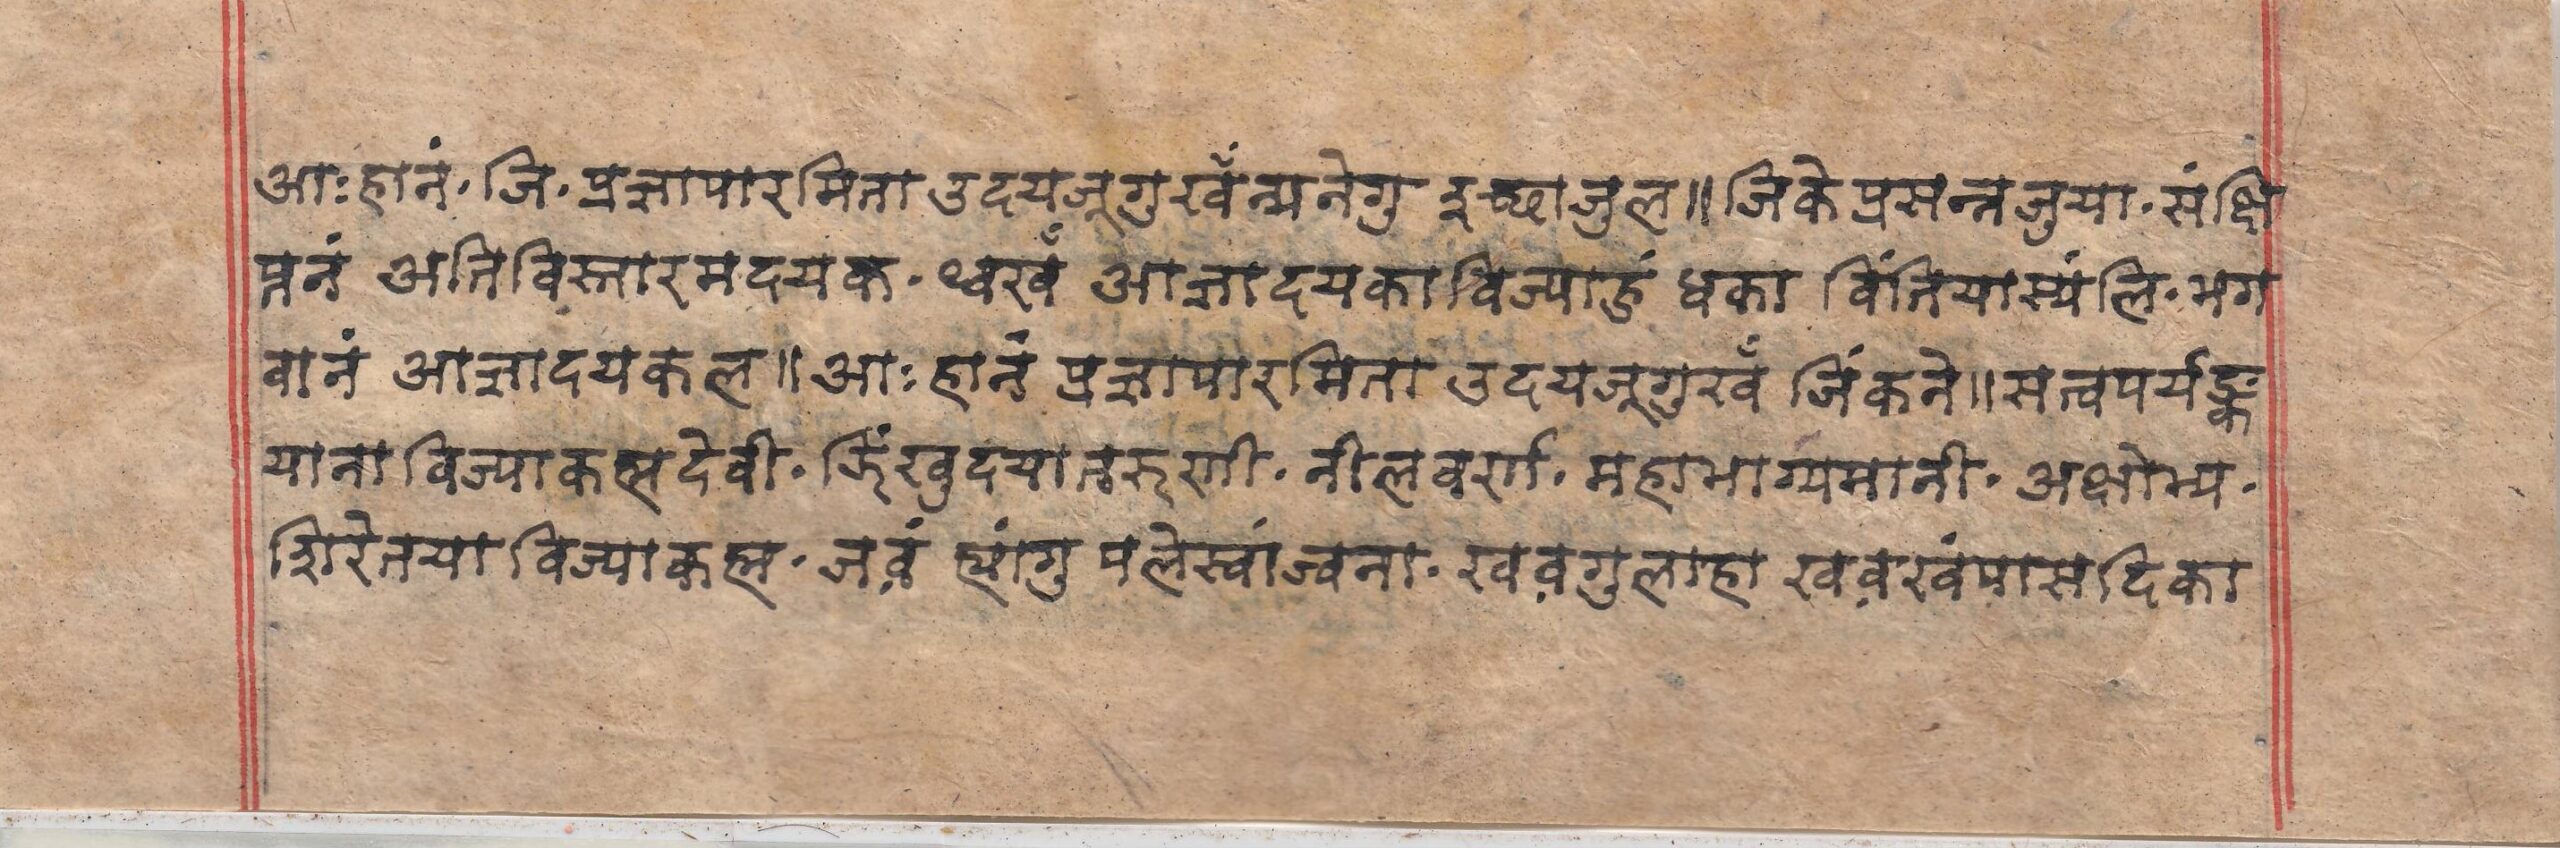 आः हानं. जि. प्रज्ञापारमिता उदयजूगुखँ न्यनेगु इच्छाजुल॥ जिके प्रसन्नजुया. संक्षि
प्तनं अतिविस्तारमदयक. थ्वखँ आज्ञादयका विज्याहुं धका विंतियास्यंलि. भग
वानं आज्ञादयकल॥ आः हानं प्रज्ञापारमिता उदयजूगुखँ जिंकने॥ सत्वपर्यङ्क
याना विज्याकह्मदेवी. झिंखुदया तरूणी. नीलवर्ण. महाभाग्यमानी. अक्षोभ्य.
शिरेतया विज्याकह्म. जव़ं ह्यांगु पलेस्वांज्वना. खव़गुलाहा खव़खंपासदिका